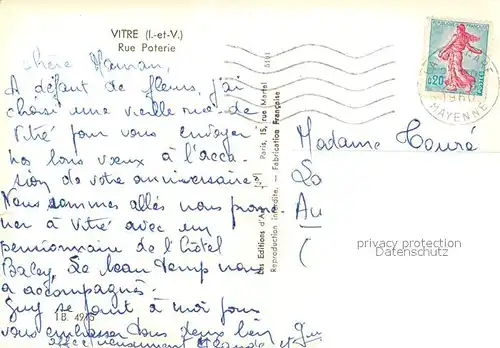 VITRE (I.-et-V.)
Rue Poterie
Chère Maman,
A défaut de fleurs, j'ai
choisi une vieille rue de
Vitré pour vous envoyer
nos bons vœux à l'occa-
sion de votre anniversaire.
Nous sommes allés nous prome
ner à Vitré avec un
pensionnaire de l'hôtel
Le beau temps nous
a accompagnés.
Guy se joint à moi pour
vous embrasser tous deux bien
affectueusement et Guy
18. 49
Les Editions d'Art Paris, 15, rue Martel 1515
Reproduction interdite. - Fabrication Française
0,20
1960
MAYENNE
Madame Houré
Au
privacy protection
Datenschutz